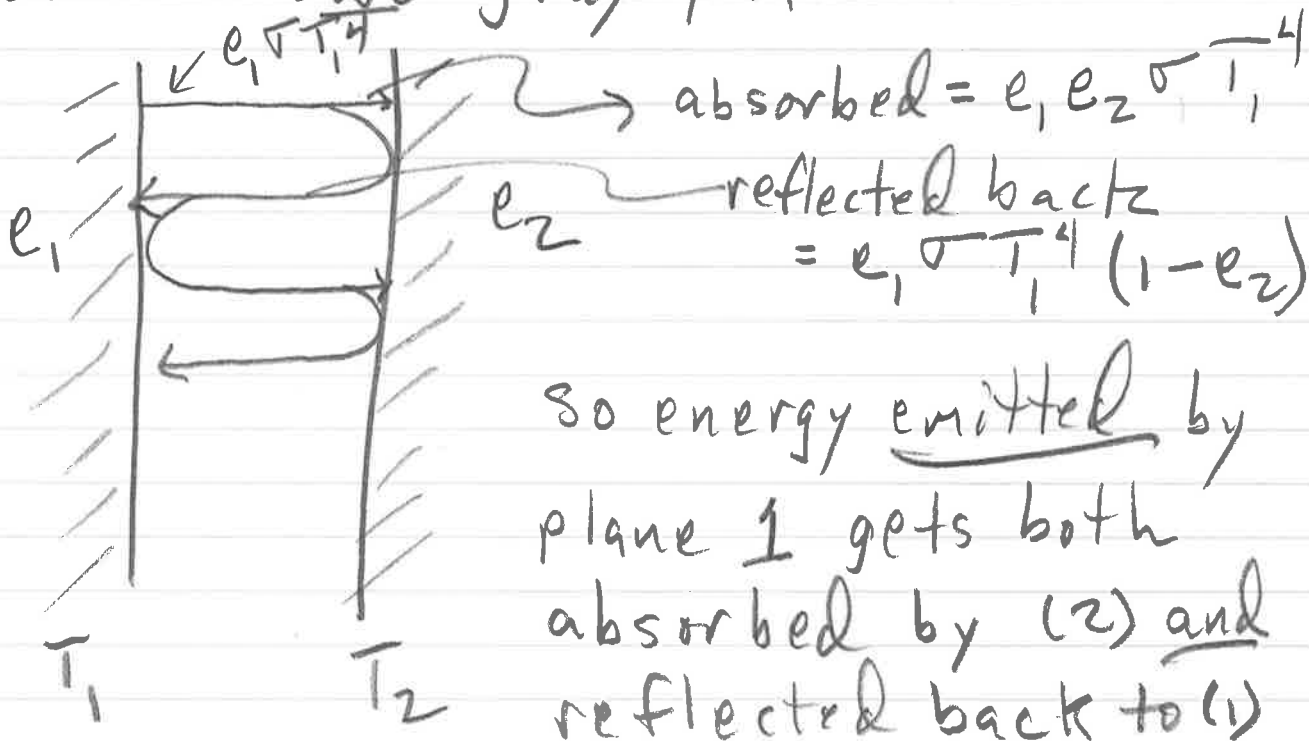 e₁σT₁⁴
absorbed = e₁ e₂ σ T₁⁴
reflected back
= e₁ σ T₁⁴ (1-e₂)
e₁
e₂
so energy emitted by
plane 1 gets both
absorbed by (2) and
reflected back to (1)
T₁
T₂